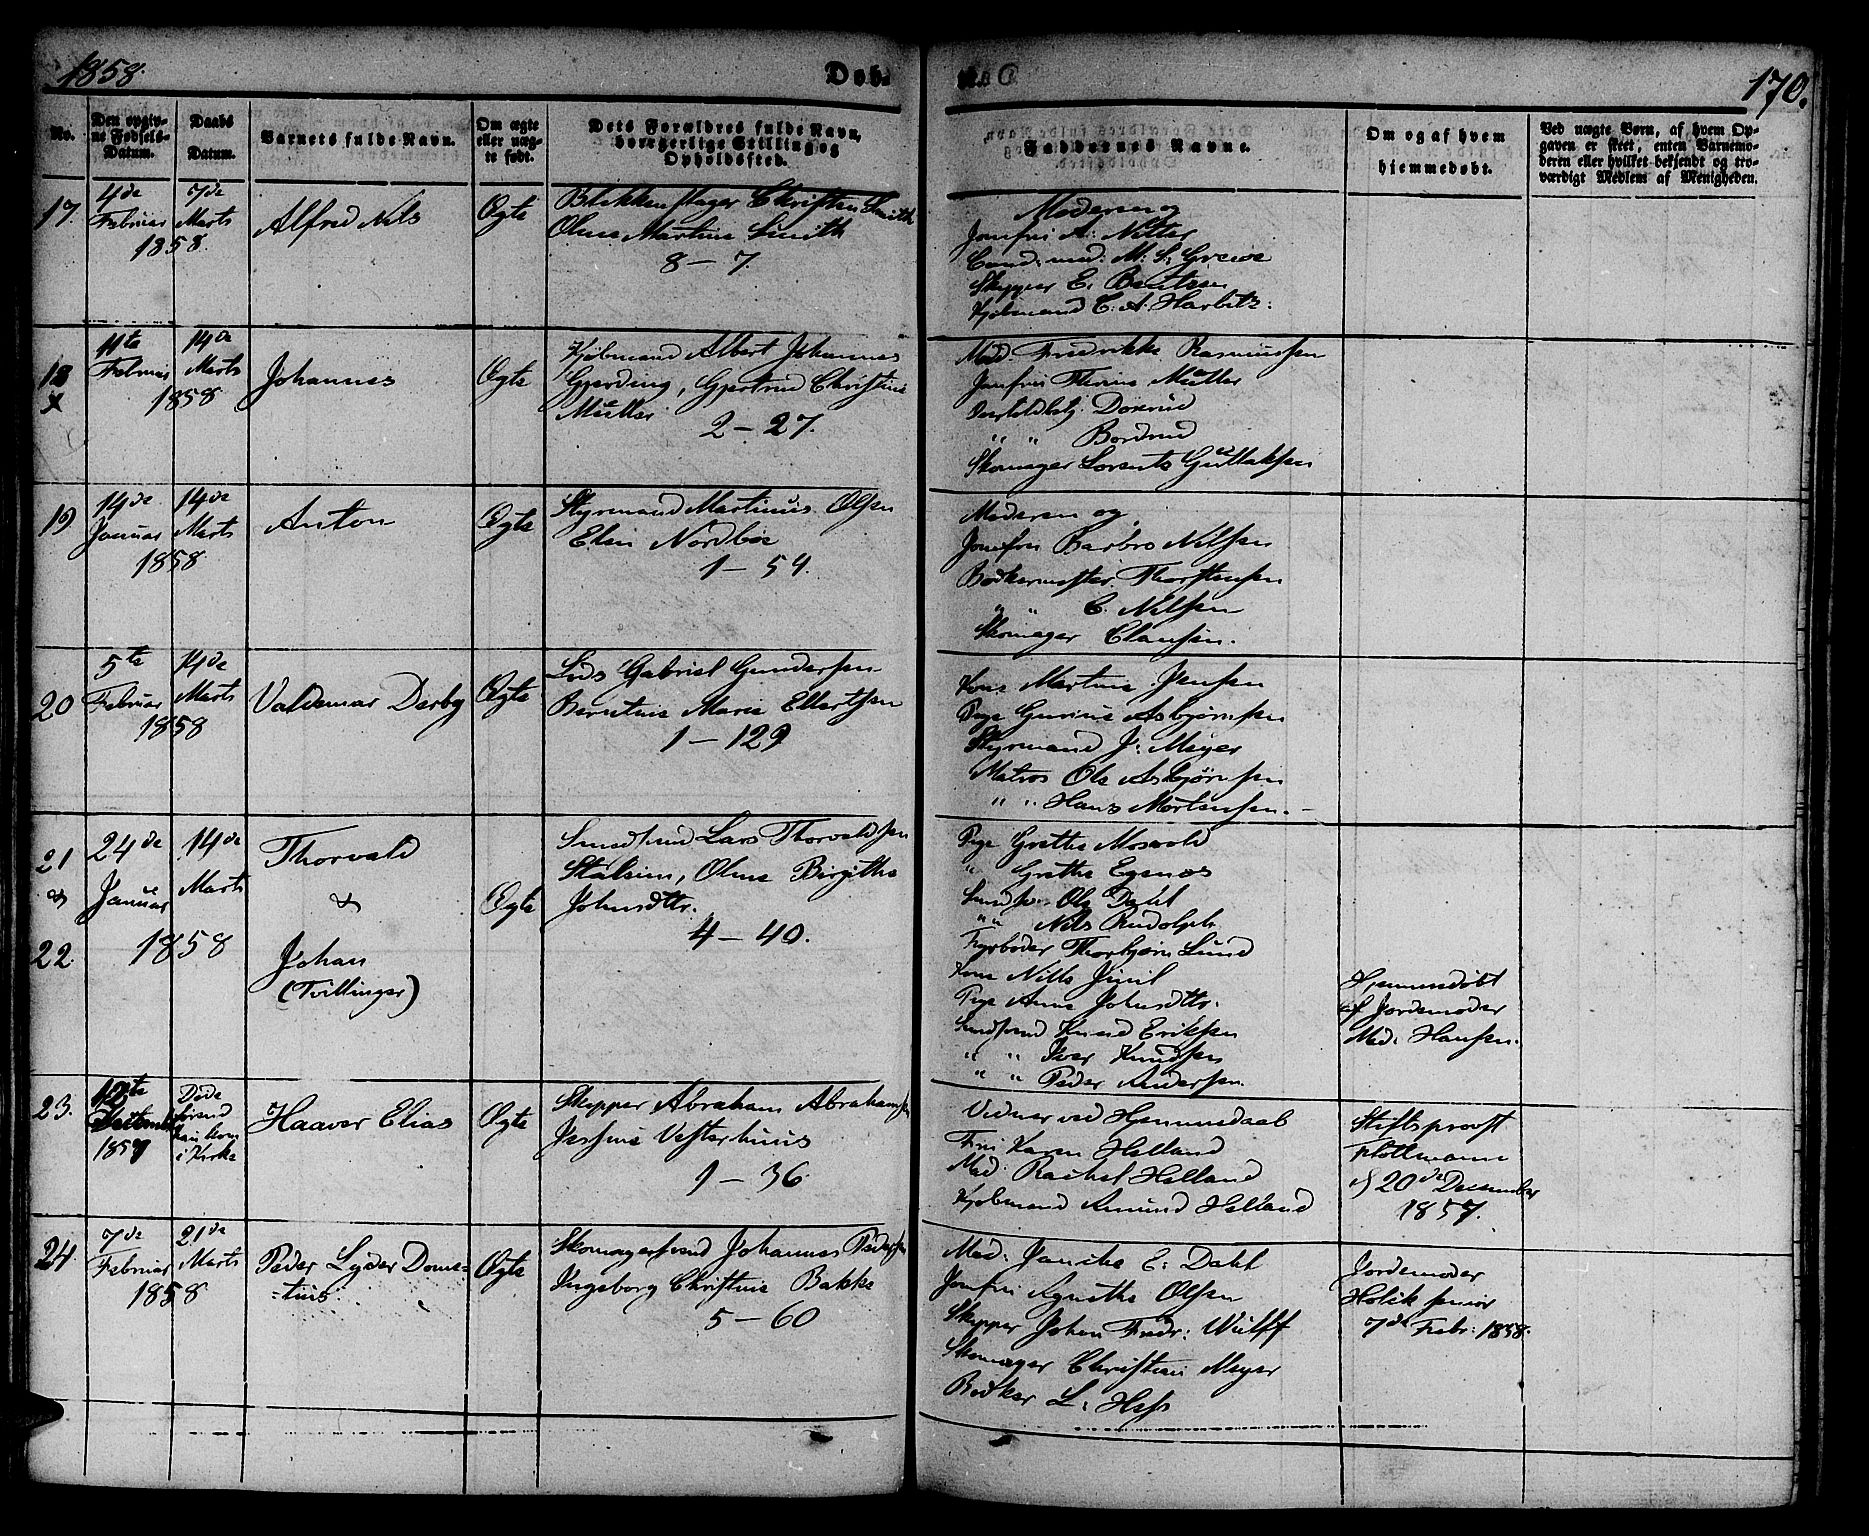 1858.
Døb.
170.
No.
Den opgiv-
ne Fødsels-
Datum.
Daabs
Datum.
Barnets fulde Navn.
Om ægte
eller uæg-
te født.
Dets Forældres fulde Navn,
borgerlige Stilling og
Opholdssted.
Faddernes Navne.
Om og af hvem
hjemmedøbt.
Ved uægte Børn, af hvem Op-
gaven er skeet, enten Barnemo-
deren eller hvilket bekjendt og tro-
værdigt Medlem af Menigheden.
17.
4de
Februar
7de
Marts
1858.
Alfred Nils
Ægte
Blikkenslager Christen Smith
Oline Martine Smith
8 – 7.
Moderen og
Jomfru A. Nitter
Cand. med. M. S. Greve
Skipper E. Berntsen
Kjøbmand C. A. Harbitz.
18
x
11te
Februar
14de
Marts
1858
Johannes
Ægte
Kjøbmand Albert Johannes
Gjerding, Gjertrud Christine
Müller
2 – 27.
Mad. Fredrikke Rasmussen
Jomfru Thrine Müller
Doxrud
" " Bordrud
Skomager Lorents Gullaksen
19
14de
Januar
14de
Marts
1858
Anton
Ægte
Styrmand Martinus Olsen
Elen Nordbøe
1 – 54.
Moderen og
Jomfru Barbro Nilsen
Bødkermester Thorstensen
" " C. Nilsen
Skomager Clausen.
20
5te
Februar
14de
Marts
1858
Valdemar Derby
Ægte
Lods Gabriel Gundersen
Berntine Marie Ellertsen
1 – 129
Kone Martine Jensen
Pige Gurine Asbjørnsen
Styrmand J. Meyer
Matros Ole Asbjørnsen
" " Hans Mortensen.
21
&
22.
24de
Januar
14de
Marts
1858
Thorvald
&
Johan
(Tvillinger)
Ægte
Smedsvend Lars Thorvaldsen
Stølsein, Oline Birgithe
Johnsdttr.
4 – 40.
Pige Grethe Mosvold
" Grethe Egenes
Smedsv. Ole Dahl
" " Nils Rudolph
Fyrbøder Thorbjørn Lund
Kone Nille Juul
Pige Anne Johnsdttr.
Smedsvend Knud Eriksen
" " Iver Knudsen
" " Peder Andersen.
Hjemmedøbt
af Jordemoder
Mad. Hansen.
23.
1857
Døde
førend
kan kom
i Kirke
Haaver Elias
Ægte
Skipper Abraham Abrahamsen
Jesine Vesterhuus
1 – 36
Vidner ved Hjemmedaab
Fru Karen Helland
Mad. Rachel Helland
Kjøbmand Amund Helland
Stiftsprovst
Flottmann
d 20de December
1857.
24.
7de
Februar
21de
Marts
1858
Peder Lyder Dome-
-tius
Ægte
Skomagersvend Johannes Pedersen
Ingeborg Christine Bakke
5 – 60
Mad. Janike E. Dahl
Jomfru Agnethe Olsen
Skipper Johan Fredr. Wulff
Skomager Christian Meyer
Bødker L. Hess
Jordemoder
Holck senior
7de Febr. 1858.